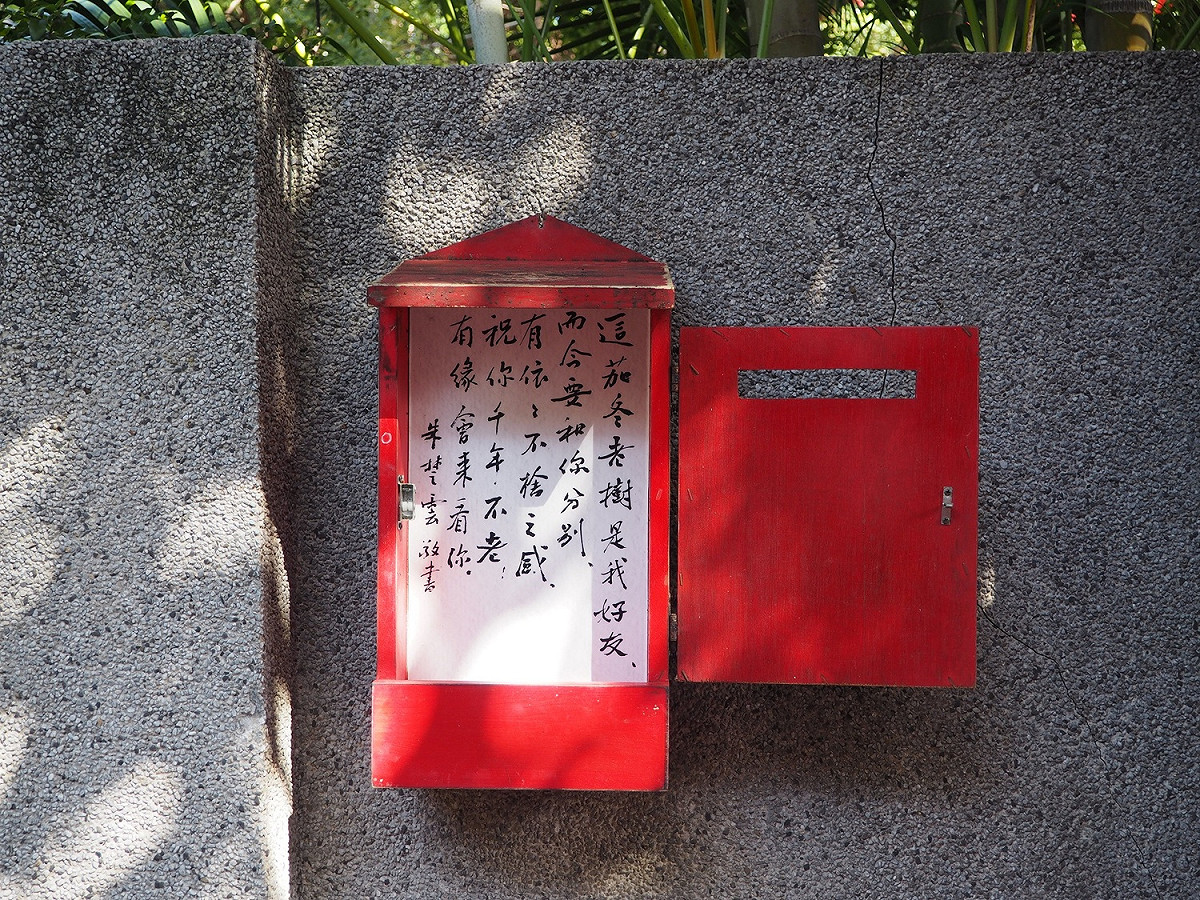 這茄冬老樹是我好友、
而今要和你分別、
有依〻不捨之感、
祝你千年不老!
有緣會來看你.
朱楚雲敬書